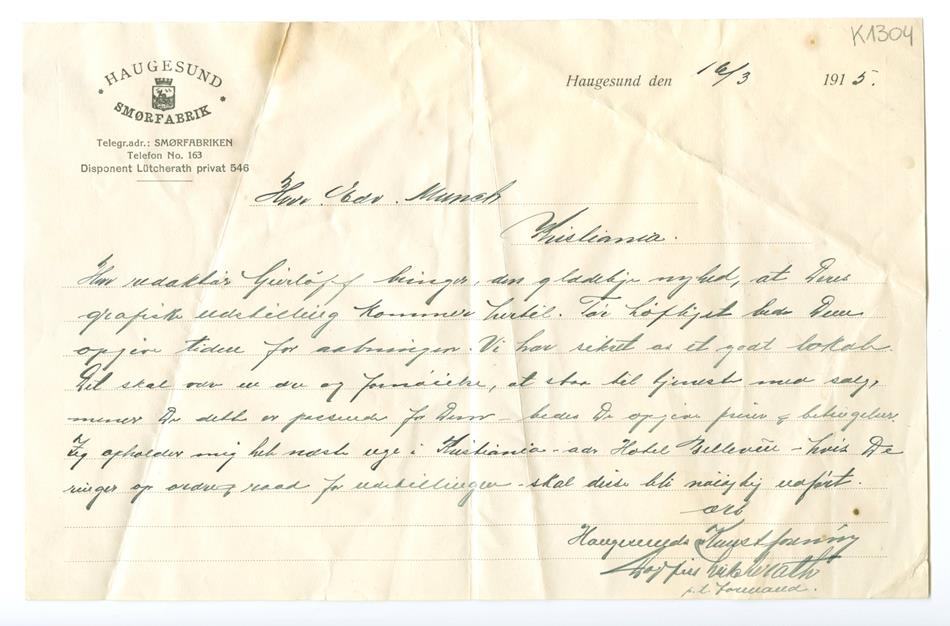 K1304
HAUGESUND
SMØRFABRIK
Telegr.adr.: SMØRFABRIKEN
Telefon No. 163
Disponent Lütcherath privat 546
Haugesund den 16/3 1915.
Herr Edv. Munch
Kristiania.
Herr redaktør Gierløff bringer, den gladelige nyhed, at Deres
grafiske utstilling kommer hertil. Tør höfligst bede Dem
opgive tiden for aabningen. Vi har sikret os et godt lokale.
Det skal være en ære og fornöielse, at staa til tjeneste med salg,
mener De dette er passende for Dem – bedes De opgive priser & betingelser.
Jeg opholder mig hel næste uge i Kristiania – adr Hotel Bellevue – hvis De
ringer op ordre & raad for utstillingen – skal disse bli nöiagtig utført.
Haugesunds Kunstforening
Lütcherath
p.t. formand.